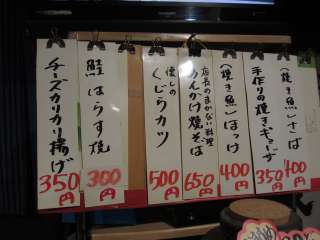 (焼き魚)さば
400円
手作りの焼きギョーザ
350円
(焼き魚)ほっけ
400円
店長のまかない料理
あんかけ焼そば
650円
懐しの
くじらカツ
500円
鮭はらす焼
300円
チーズカリカリ揚げ
350円